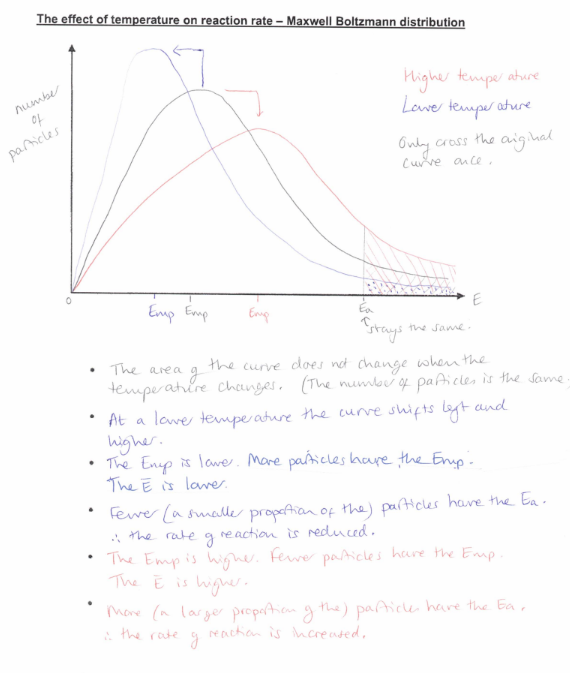 The effect of temperature on reaction rate – Maxwell Boltzmann distribution
number
of
particles
Higher temperature
Lower temperature
Only cross the original
curve once.
0
Emp
Emp
Emp
Ea
E
↑stays the same.
• The area of the curve does not change when the
temperature changes. (The number of particles is the same.
• At a lower temperature the curve shifts left and
higher.
• The Emp is lower. More particles have the Emp.
The Ē is lower.
• Fewer (a smaller proportion of the) particles have the Ea.
∴ the rate of reaction is reduced.
• The Emp is higher. Fewer particles have the Emp.
The Ē is higher.
• More (a larger proportion of the) particles have the Ea.
∴ the rate of reaction is increased.